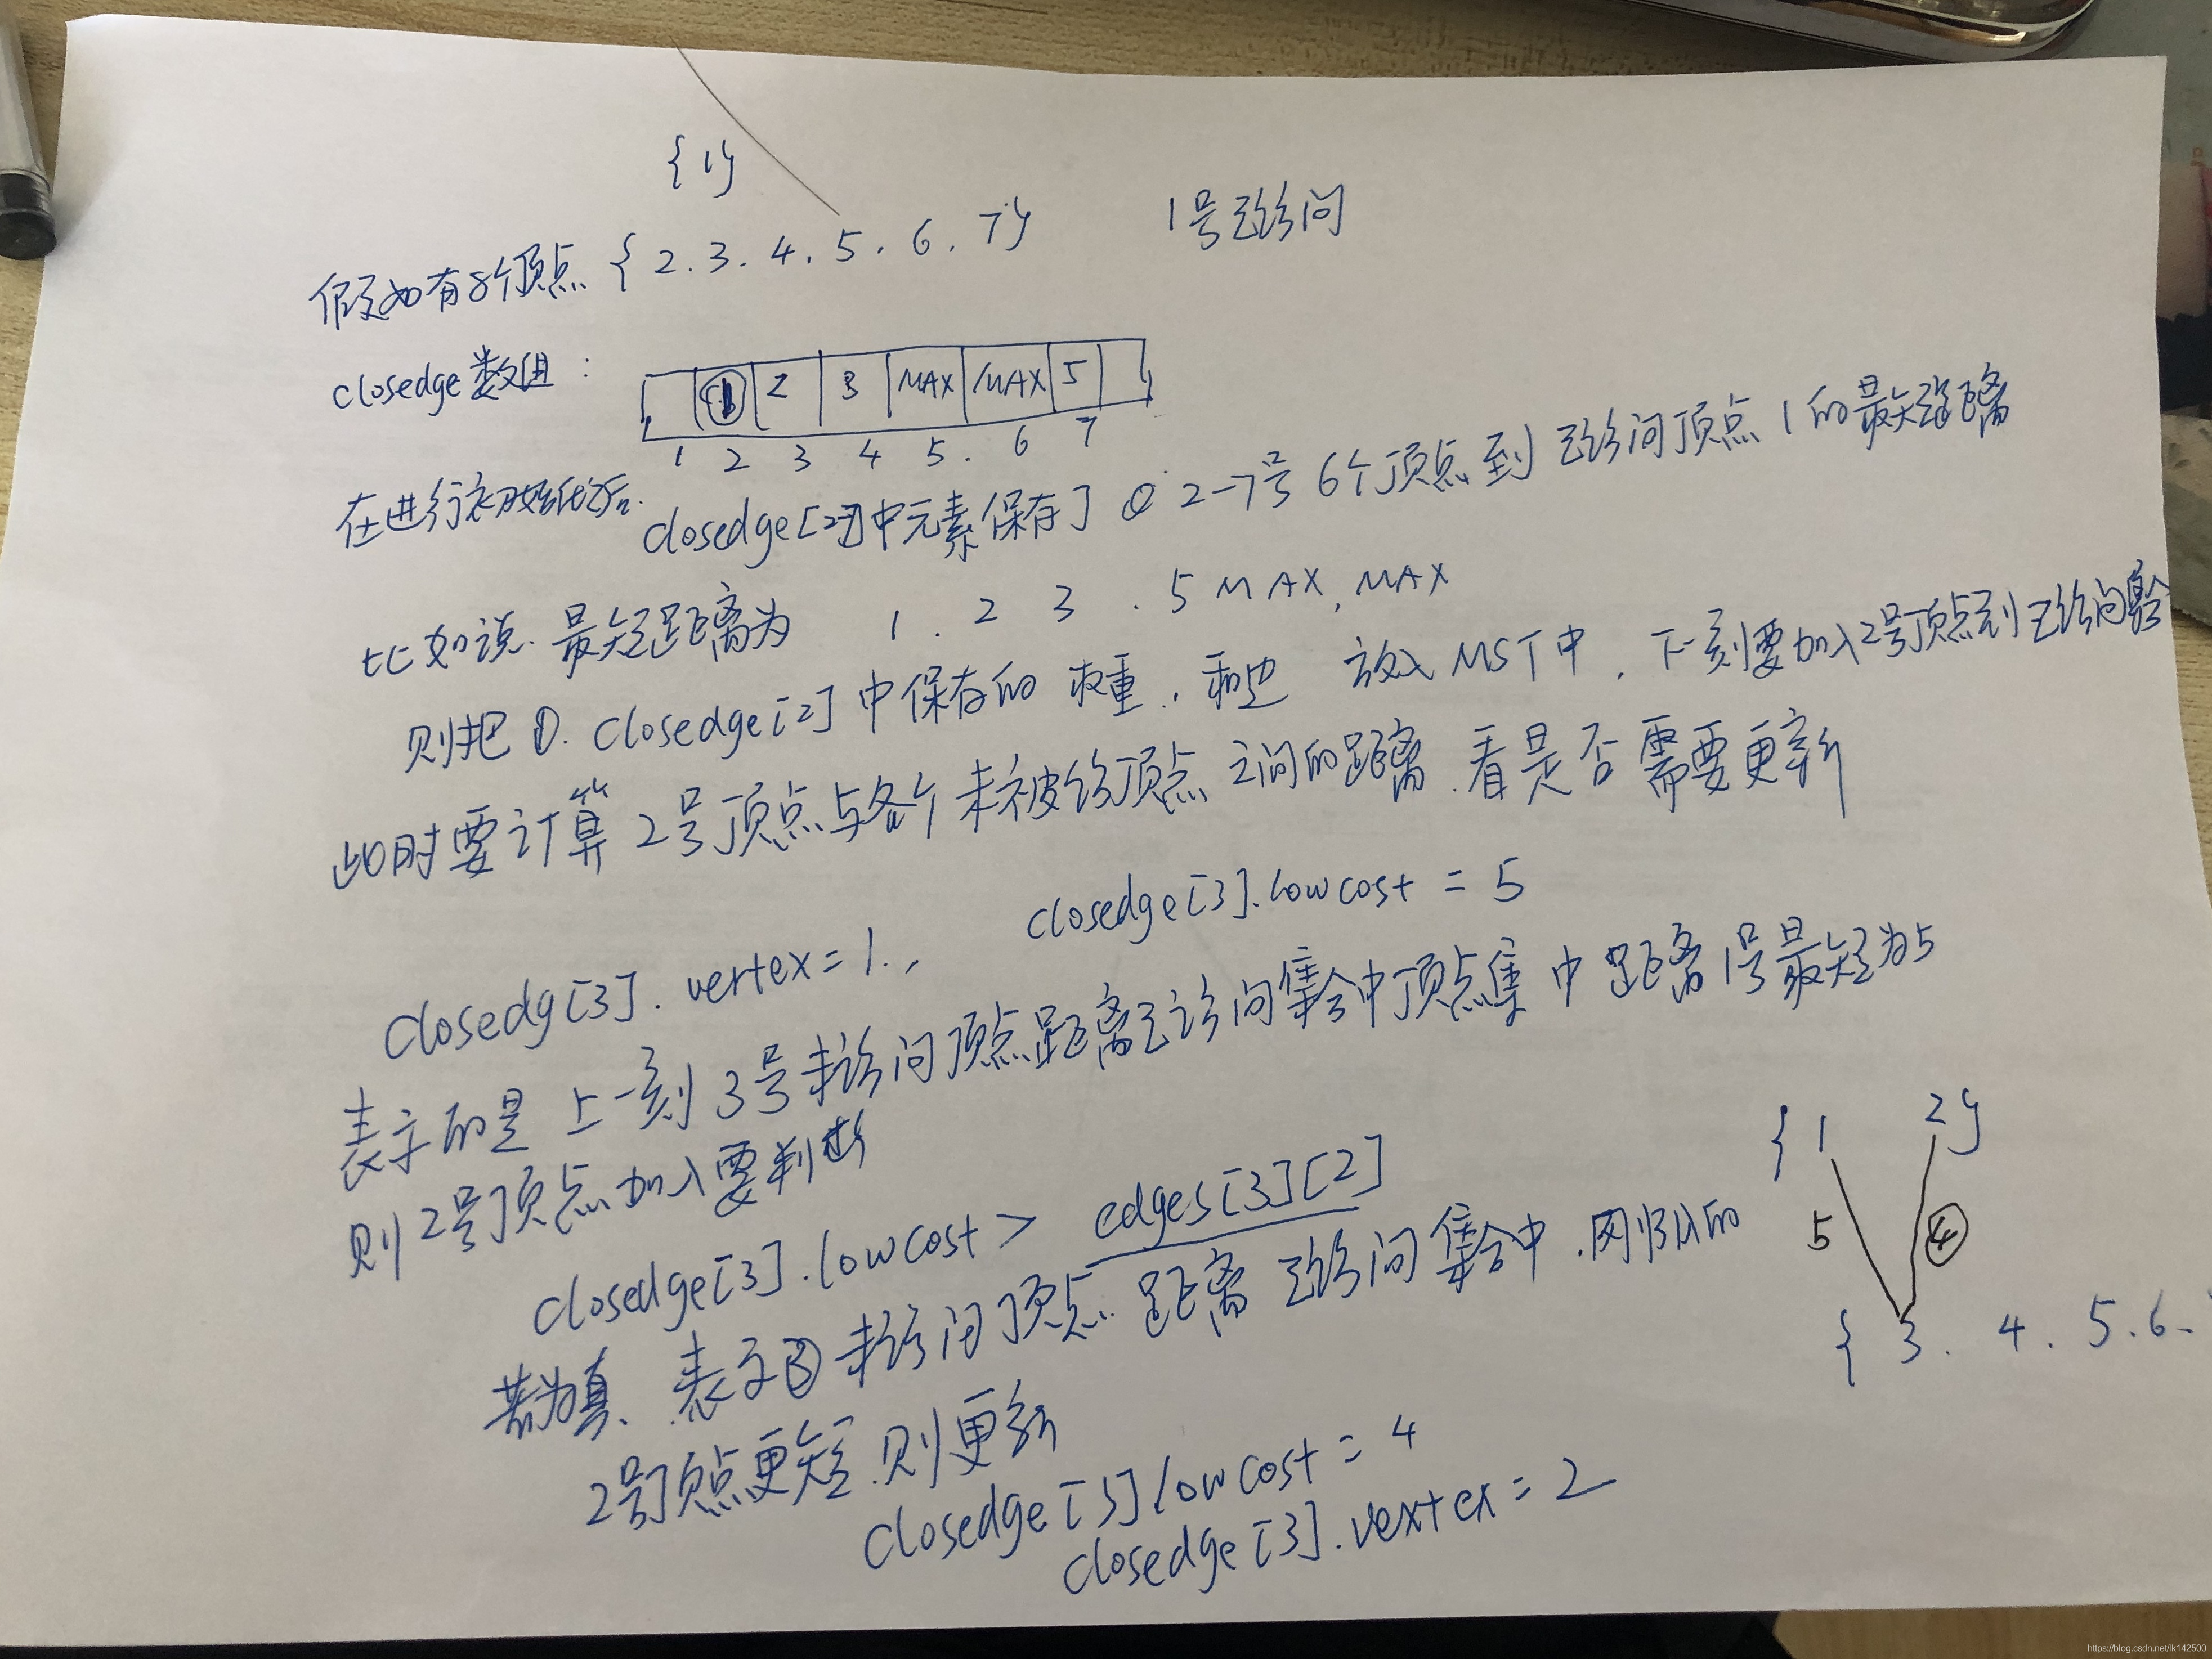 {1}
假如有8个顶点 {2.3.4.5.6.7} 1号已访问
closedge数组: 1 2 3 MAX MAX 5
1 2 3 4 5. 6 7
在进行初始化之后.
closedge[2-7]中元素保存了 2-7号 6个顶点到 已访问顶点 1 的最短距离
比如说. 最短距离为 1. 2 3 . 5 MAX, MAX
则把 ①. closedge[2]中保存的 权重. 和边 放入MST中. 下一刻要加入2号顶点到已访问集合
此时要计算 2号顶点与各个未被访顶点 之间的距离. 看是否需要更新
closedg[3]. vertex=1., closedge[3].lowcost = 5
表示的是 上一刻 3号未访问顶点距离已访问集合中顶点集 中 距离 1号最短为5
则 2号顶点加入要判断
closedge[3].lowcost > edges[3][2]
若为真、表示③未访问顶点. 距离 已访问集合中.刚归入的
2号顶点更短.则更新
closedge[3]lowcost = 4
closedge[3].vextex = 2
{1 2}
5 ④
{3. 4. 5.6.
https://blog.csdn.net/lk142500